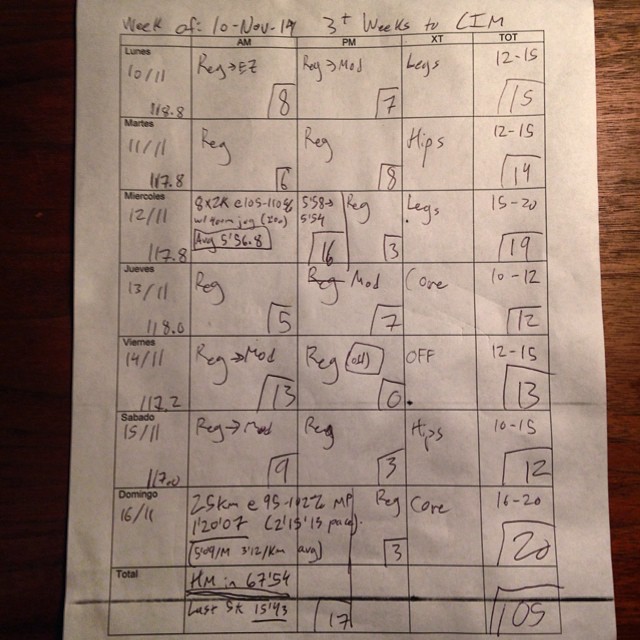 Week of: 10-Nov-14 3+ Weeks to CIM
AM PM XT TOT
Lunes
10/11 Reg→EZ Reg→Mod Legs 12-15
118.8 8 7 15
Martes
11/11 Reg Reg Hips 12-15
117.8 6 8 14
Miercoles
12/11 8x2K @ 105-110% 5'58→ Reg Legs 15-20
w/ 400m jog 5'54
117.8 Avg 5'56.8 16 3 19
Jueves
13/11 Reg Reg Mod Core 10-12
118.0 5 7 12
Viernes
14/11 Reg→Mod Reg (off) OFF 12-15
117.2 13 0 13
Sabado
15/11 Reg→Mod Reg Hips 10-15
117.0 9 3 12
Domingo
16/11 25km @ 95-102% MP Reg Core 16-20
1'20'07 (2'15'15 pace).
5'09/M 3'12/Km avg) 3 20
Total HM in 67'54
Last 5k 15'43 17 105